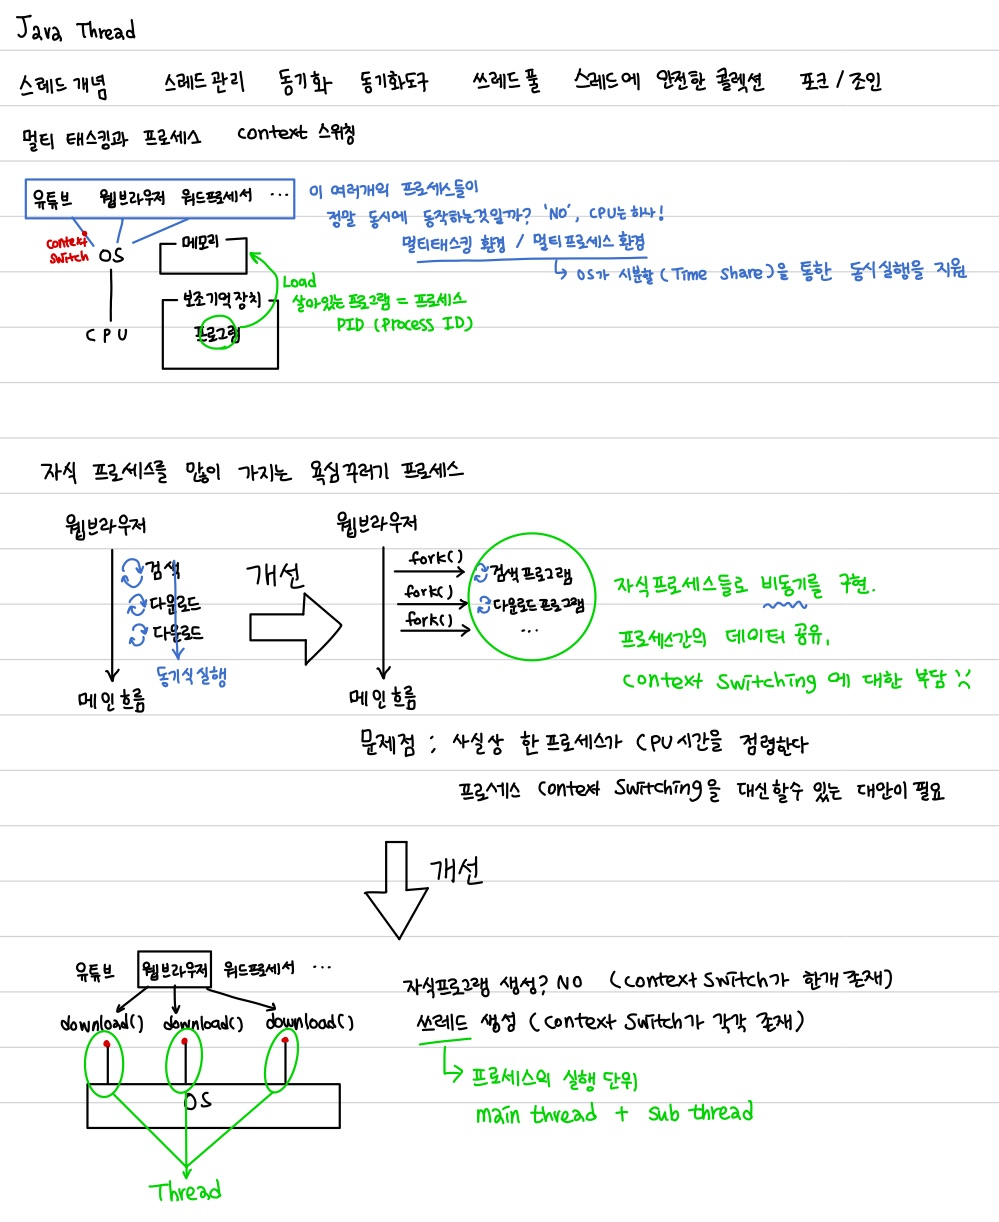 Java Thread
스레드 개념 스레드 관리 동기화 동기화도구 쓰레드 풀 스레드에 안전한 콜렉션 포크 / 조인
멀티 태스킹과 프로세스 context 스위칭
유튜브 웹브라우저 워드프로세서 ...
이 여러개의 프로세스들이
정말 동시에 동작하는것일까? 'NO', CPU는 하나!
멀티태스킹 환경 / 멀티프로세스 환경
↳ OS가 시분할(Time share)을 통한 동시실행을 지원
context
switch
OS
CPU
메모리
Load
보조기억장치
프로그램
살아있는 프로그램 = 프로세스
PID (Process ID)
자식 프로세스를 많이 가지는 욕심꾸러기 프로세스
웹브라우저
검색
다운로드
다운로드
동기식실행
메인 흐름
개선
웹브라우저
fork()
fork()
fork()
검색프로그램
다운로드 프로그램
...
메인 흐름
자식프로세스들로 비동기를 구현.
프로세스간의 데이터 공유,
context switching 에 대한 부담
문제점 : 사실상 한 프로세스가 CPU시간을 점령한다
프로세스 context switching을 대신할수 있는 대안이 필요
개선
유튜브 웹브라우저 워드프로세서 ...
download() download() download()
OS
Thread
자식프로그램 생성? NO (context switch가 한개 존재)
쓰레드 생성 (context switch가 각각 존재)
↳ 프로세스의 실행 단위
main thread + sub thread